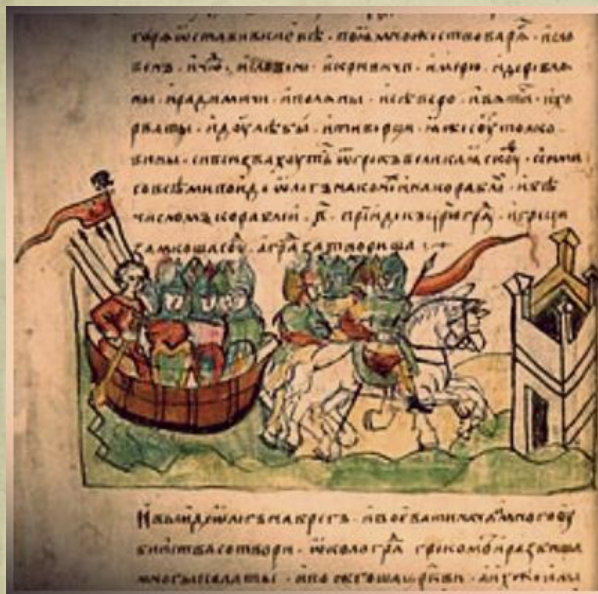 поѧ множество варѧ · и сло
венъ · и чю · и словени · и кривичи · и мерю · и деревлѧ
ны · и радимичи · и полѧны · и севѣро · и вѧти · и хо
рваты · и доулѣбы · и тиверци · ꙗже соу толко
вины · си вси звахоуть ѿ грекъ великаꙗ скоу · сими
со всѣми поиде ѿлегъ на кони и на корабле · и бѣ
числомъ кораблеи · в҃ · прїиде к црюгра · и греци
замкоша соу · а гра затвориша
И выиде ѿлегъ на брегъ · и воевати нача и много оу
бииства сотвори · ѿколо гра греком и разбиша
многы полаты · и пожгоша цркви · а их же имы